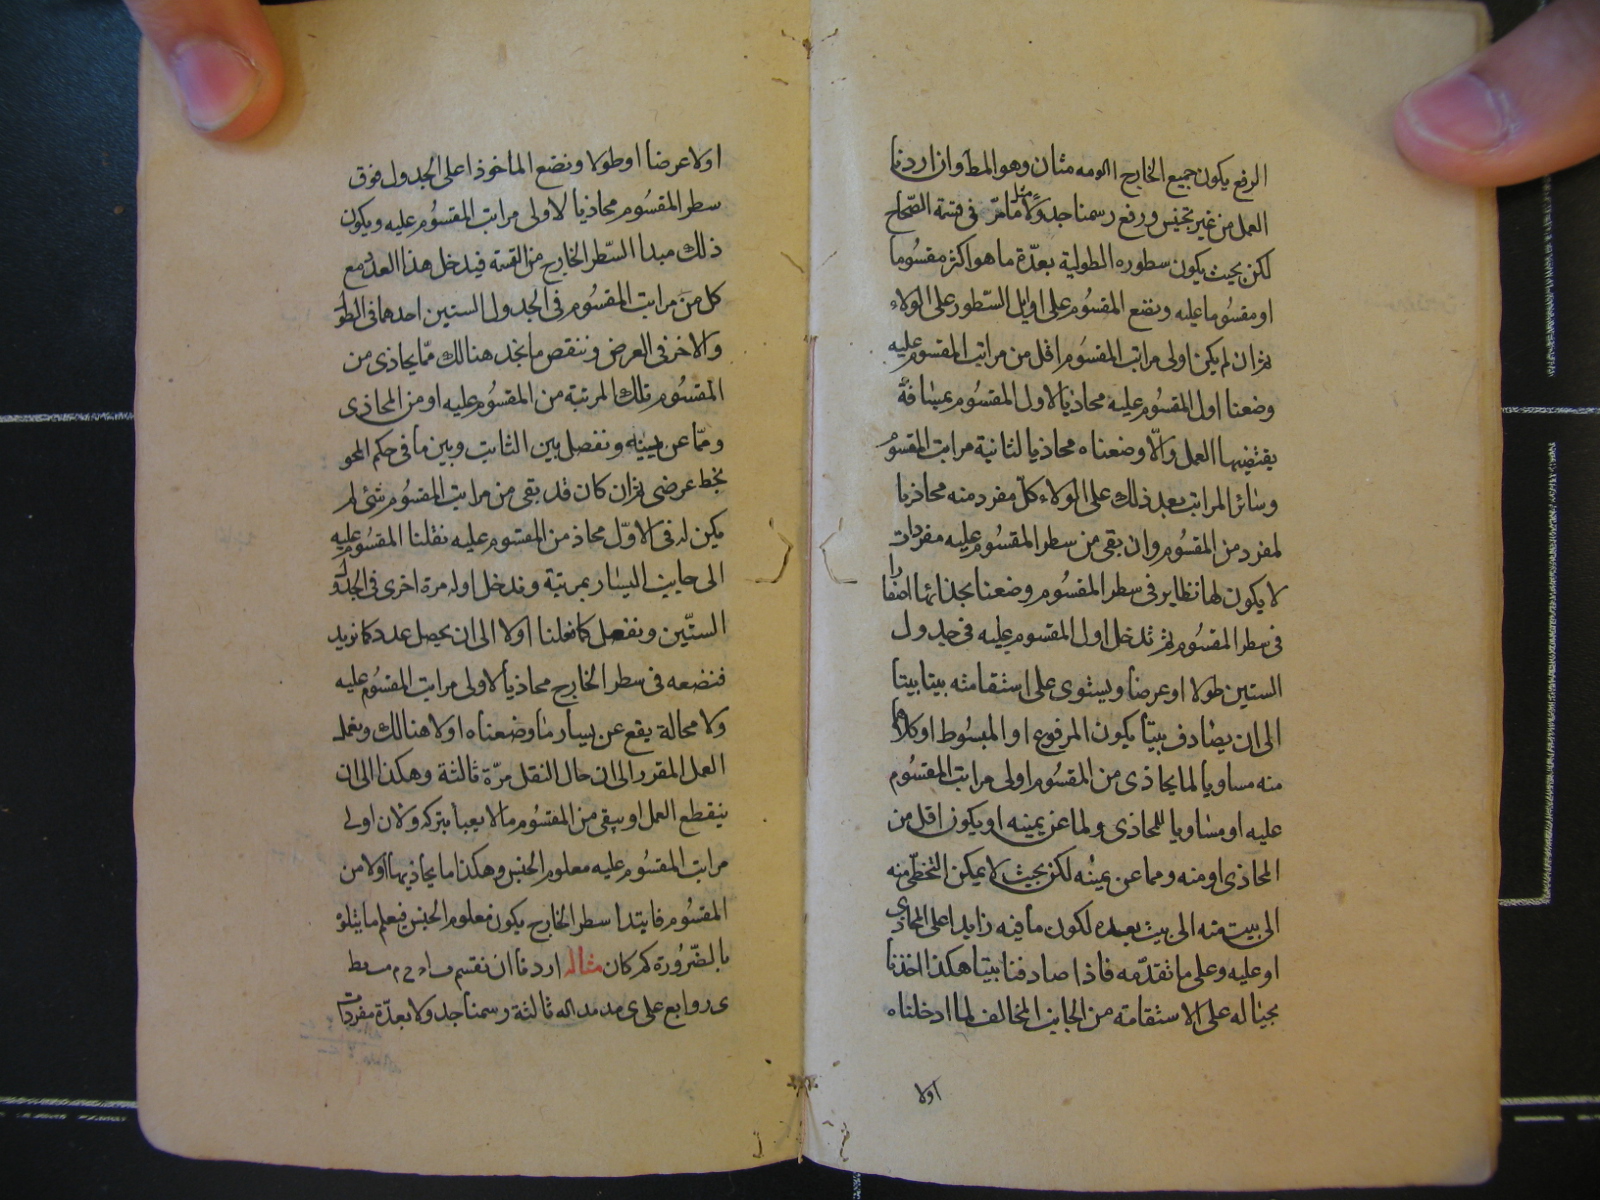 الرفع يكون جميع الخارج مثان وهو المط وان اردنا
العمل من غير تجنيس ورفع رسمنا جدولا مثل ما مر فى قسمة الصّحاح
لكن بحيث يكون سطوره الطولية بعدّة ما هو اكثر مقسُوما
او مقسُوما عليه ونضع المقسُوم على اوايل السّطور على الولاء
ثم ان لم يكن اولى مراتب المقسُوم اقل من مراتب المقسوم عليه
وضعنا اول المقسُوم عليه محاذيا لاول المقسُوم بمسافة
يقتضيها العمل والّا وضعناه محاذيا لثانية مراتب المقسُوم
وسائر المراتب بعد ذلك على الولاء كلّ مفرد منه محاذيا
لمفرد من المقسُوم وان بقى من سطر المقسُوم عليه مفردات
لا يكون لها نظاير فى سطر المقسُوم وضعنا بحذائها اصفارا
فى سطر المقسُوم ثم ندخل اول المقسوم عليه فى جدول
الستين طولا او عرضا ويستوى على استقامته بيتا بيتا
الى ان يصادف بيتا يكون المرفوع او المبسُوط او كلاهما
منه مساويا لما يحاذى من المقسُوم اولى مراتب المقسُوم
عليه او مساويا للمحاذى ولما عن يمينه او يكون اقل من
المحاذى او منه ومما عن يمينه لكن بحيث لا يمكن التخطّى منه
الى بيت منه الى بيت بعده لكون ما فيه زايدا على المحاذى
او عليه وعلى ما تقدّمه فاذا صادفنا بيتا هكذا اخذنا
بحياله على الاستقامة من الجانب المخالف لما ادخلناه
اولا
اولا عرضا او طولا ونضع الماخوذ اعلى الجدول فوق
سطر المقسُوم محاذيا لاولى مراتب المقسُوم عليه ويكون
ذلك مبدا السّطر الخارج من القسمة فيدخل هذا العدد مع
كل من مراتب المقسُوم فى الجدول الستين احدهما فى الطول
والاخر فى العرض وننقص ما نجد هنالك ممّا يحاذى من
المقسُوم تلك المرتبة من المقسُوم عليه او من المحاذى
وممّا عن يمينه ونفصل بين الثابت وبين ما فى حكم المحو
بخط عرضى ثم ان كان قد بقى من مراتب المقسُوم شئ لم
يكن له فى الاوّل محاذ من المقسُوم عليه نقلنا المقسُوم عليه
الى جانب اليسار بمرتبة وندخل اوله مرة اخرى فى الجدول
الستّين ونفعل كما فعلنا اولا الى ان يحصل عدد كما نريد
فنضعه فى سطر الخارج محاذيا لاولى مراتب المقسُوم عليه
ولا محالة يقع عن يسار ما وضعناه اولا هنالك ونعمل
العمل المقرر الى ان حال النقل مرّة ثالثة وهكذا الى ان
ينقطع العمل او يبقى من المقسُوم ما لا يعبأ بتركه ولان اولى
مراتب المقسُوم عليه معلوم الجنس وهكذا ما يحاذيها اولا من
المقسُوم فابتدا سطر الخارج يكون معلوم الجنس فيعلم ما يتلوه
بالضّرورة كم كان مثاله اردنا ان نقسم
روابع على ثالثة رسمنا جدولا بعدّة مفردات